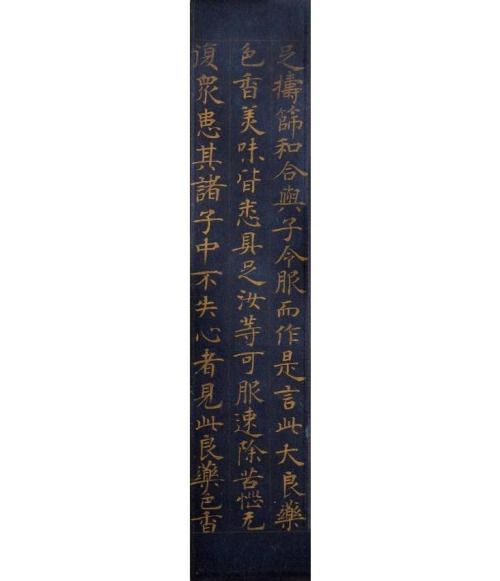 足擣篩和合與子令服而作是言此大良藥
色香美味皆悉具足汝等可服速除苦惱无
復衆患其諸子中不失心者見此良藥色香